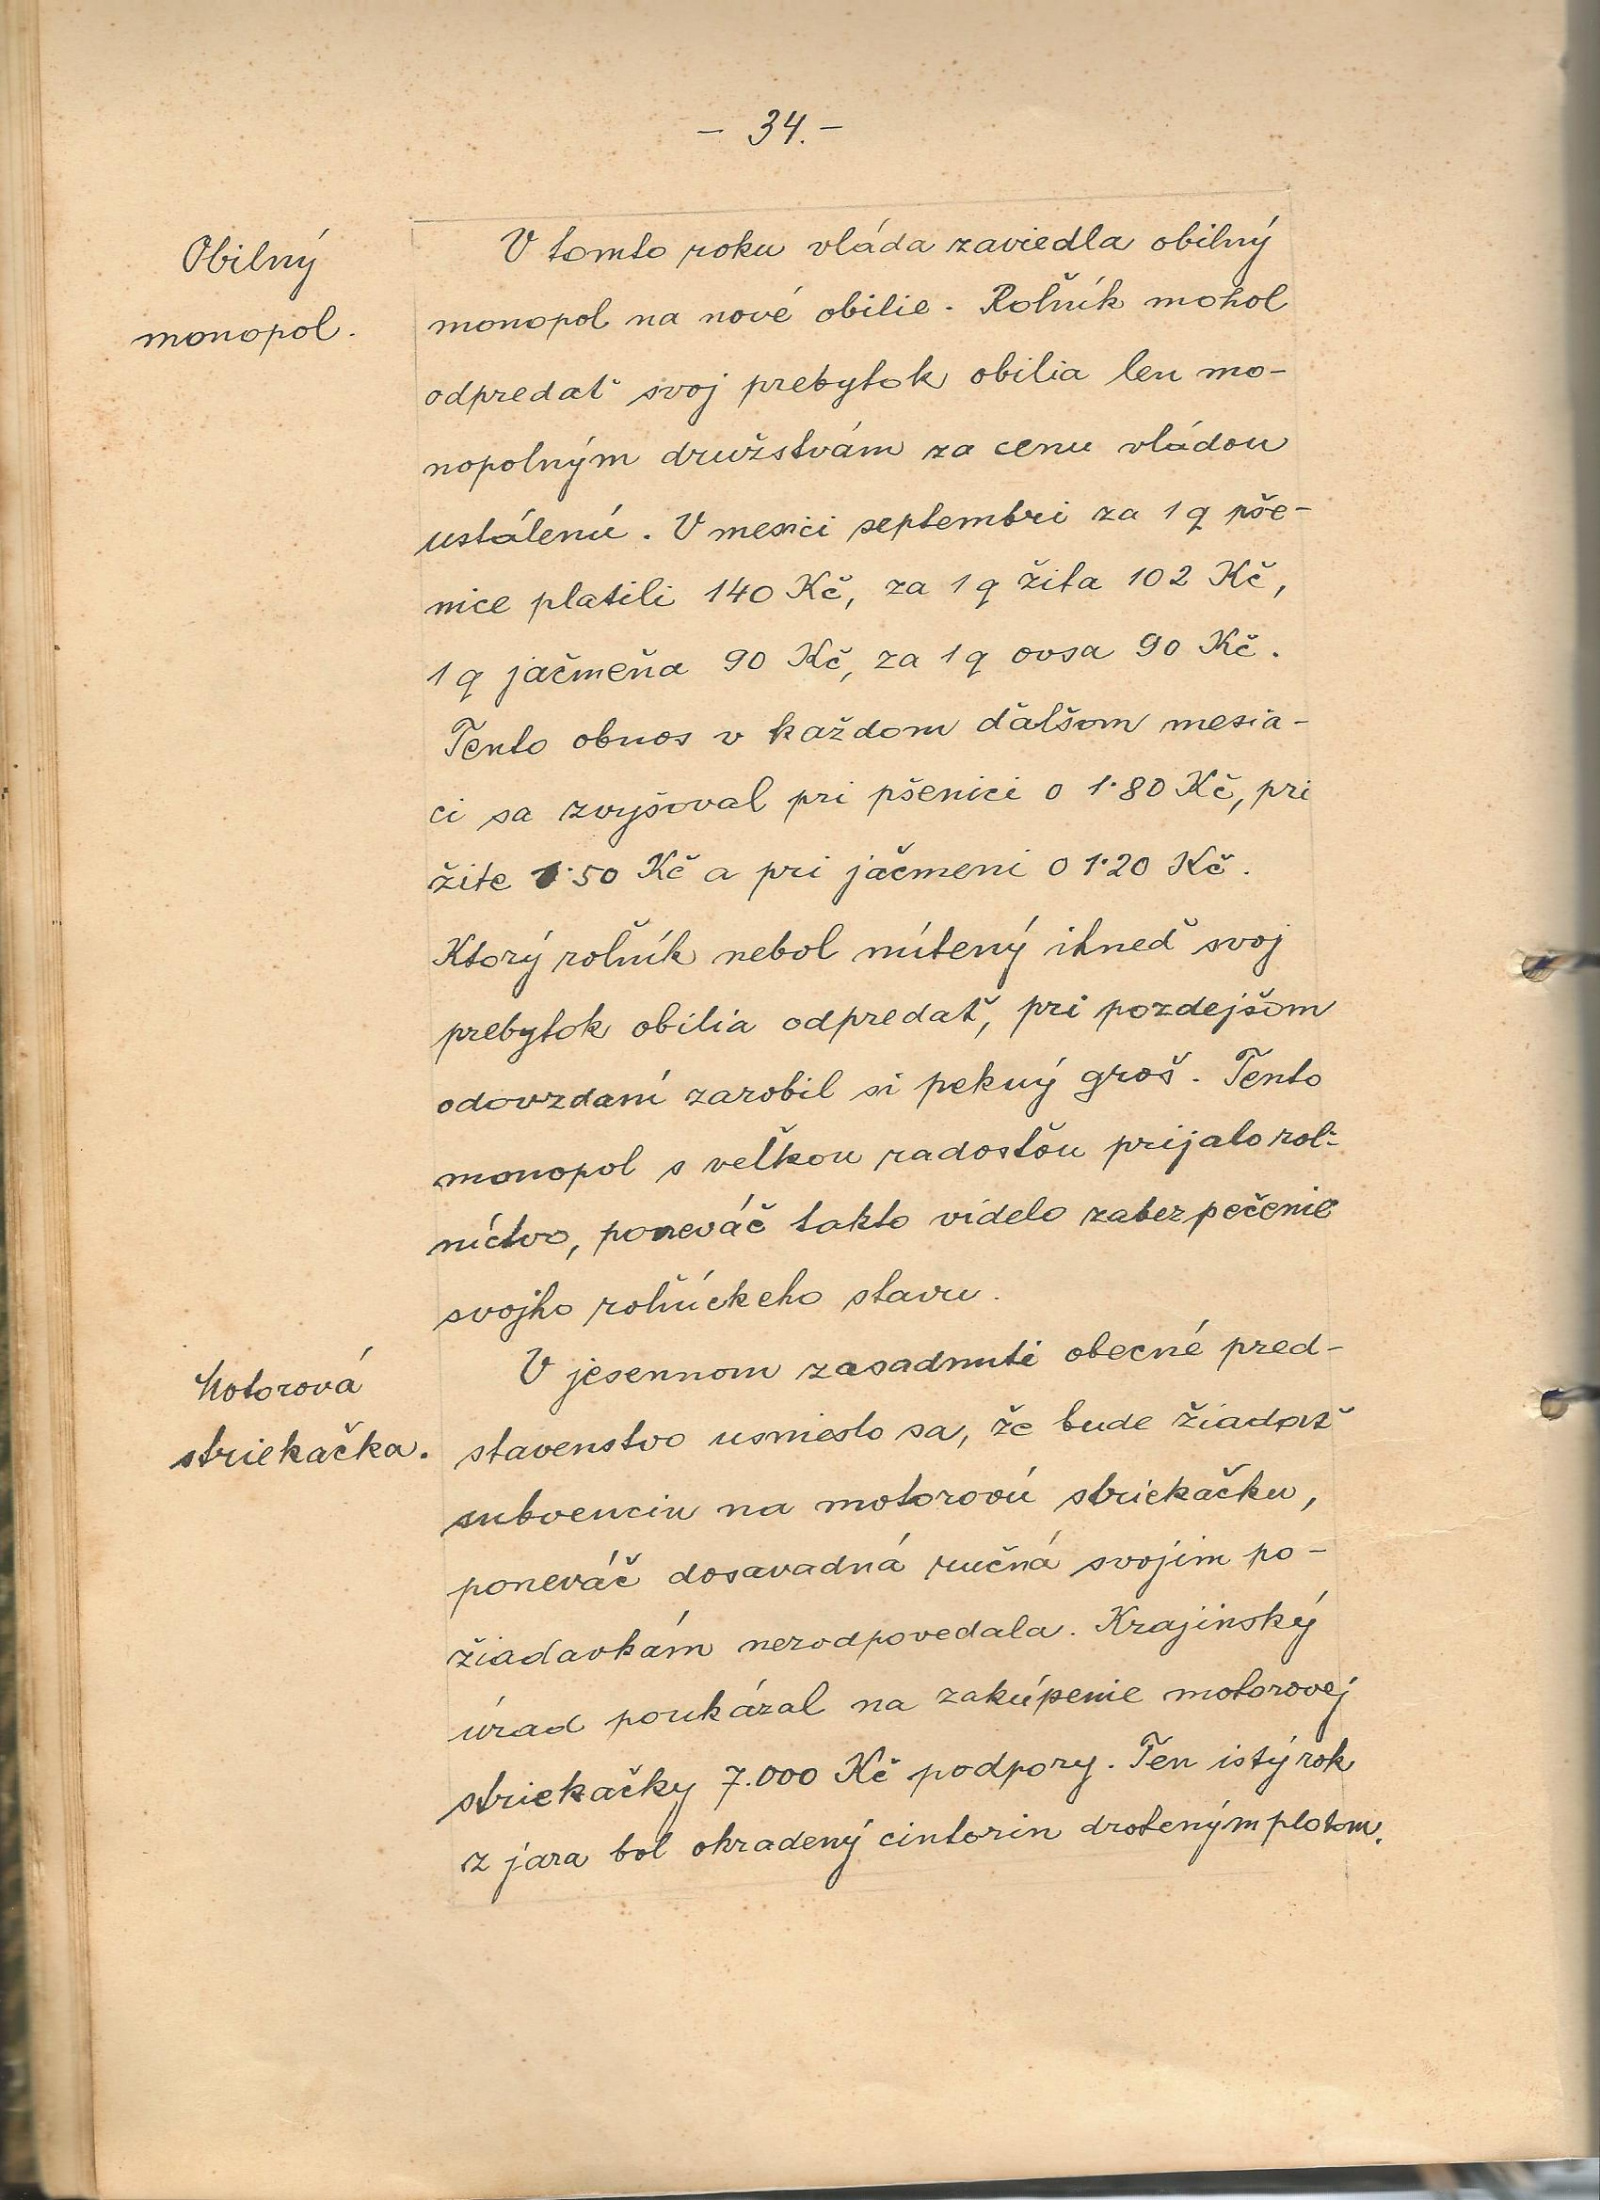 - 34. -
Obilný
monopol.
V tomto roku vláda zaviedla obilný
monopol na nové obilie. Roľník mohol
odpredať svoj prebytok obilia len mo-
nopolným družstvám za cenu vládou
ustálenú. V mesici septembri za 1 q pše-
nice platili 140 Kč, za 1 q žita 102 Kč,
1 q jačmeňa 90 Kč, za 1 q ovsa 90 Kč.
Tento obnos v každom ďalšom mesia-
ci sa zvyšoval pri pšenici o 1·80 Kč, pri
žite 1·50 Kč a pri jačmeni o 1·20 Kč.
Ktorý roľník nebol nútený ihneď svoj
prebytok obilia odpredať, pri pozdejšom
odovzdaní zarobil si pekný groš. Tento
monopol s veľkou radosťou prijalo roľ-
níctvo, poneváč takto videlo zabezpečenie
svojho roľníckeho stavu.
Motorová
striekačka.
V jesennom zasadnutí obecné pred-
stavenstvo usnieslo sa, že bude žiadať
subvenciu na motorovú striekačku,
poneváč dosavadná ručná svojim po-
žiadavkám nezodpovedala. Krajinský
úrad poukázal na zakúpenie motorovej
striekačky 7.000 Kč podpory. Ten istý rok
z jara bol ohradený cintorin droteným plotom.